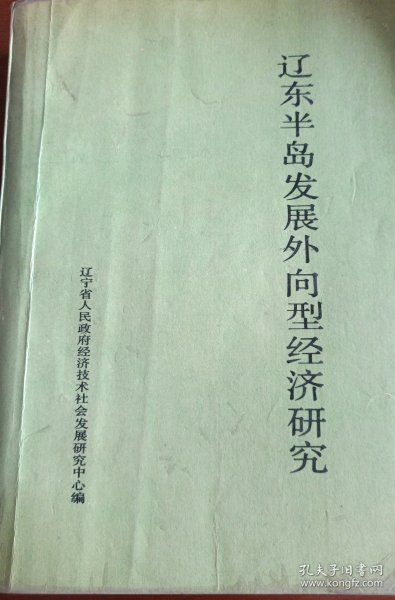 辽东半岛发展外向型经济研究
辽宁省人民政府经济技术社会发展研究中心编
孔夫子旧书网
www.kongfz.com